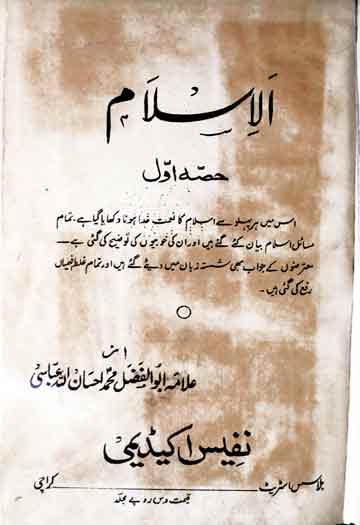 اَلاِسلَام
حصّہ اوّل
اس میں ہر پہلو سے اسلام کا نعمت خدا ہونا دکھایا گیا ہے۔ تمام
مسائل اسلام بیان کئے گئے ہیں اور ان کی خوبیوں کی توضیح کی گئی ہے ــ
معترضوں کے جواب بھی شستہ زبان میں دیئے گئے ہیں اور تمام غلط فہمیاں
رفع کی گئی ہیں۔
از
علامہ ابوالفضل محمد احسان اللہ عباسی
نفیس اکیڈیمی
بلاسس اسٹریٹ ــــــ کراچی
قیمت دس روپے مجلد